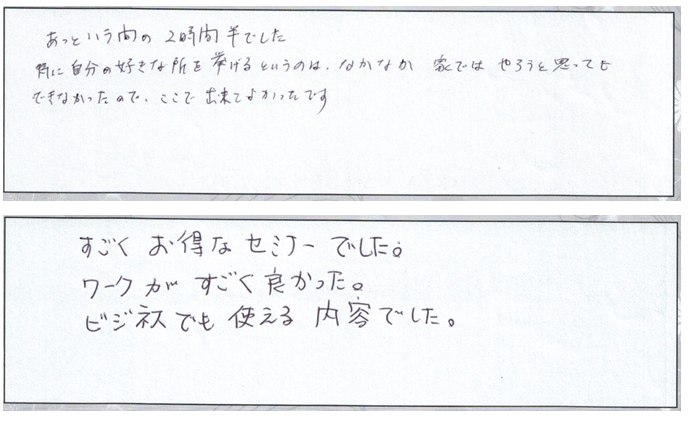 あっという間の 2時間半でした
特に自分の好きな所を挙げるというのは、なかなか 家では やろうと思っても
できなかったので、ここで 出来てよかったです
すごく お得な セミナーでした。
ワークが すごく 良かった。
ビジネスでも 使える 内容でした。